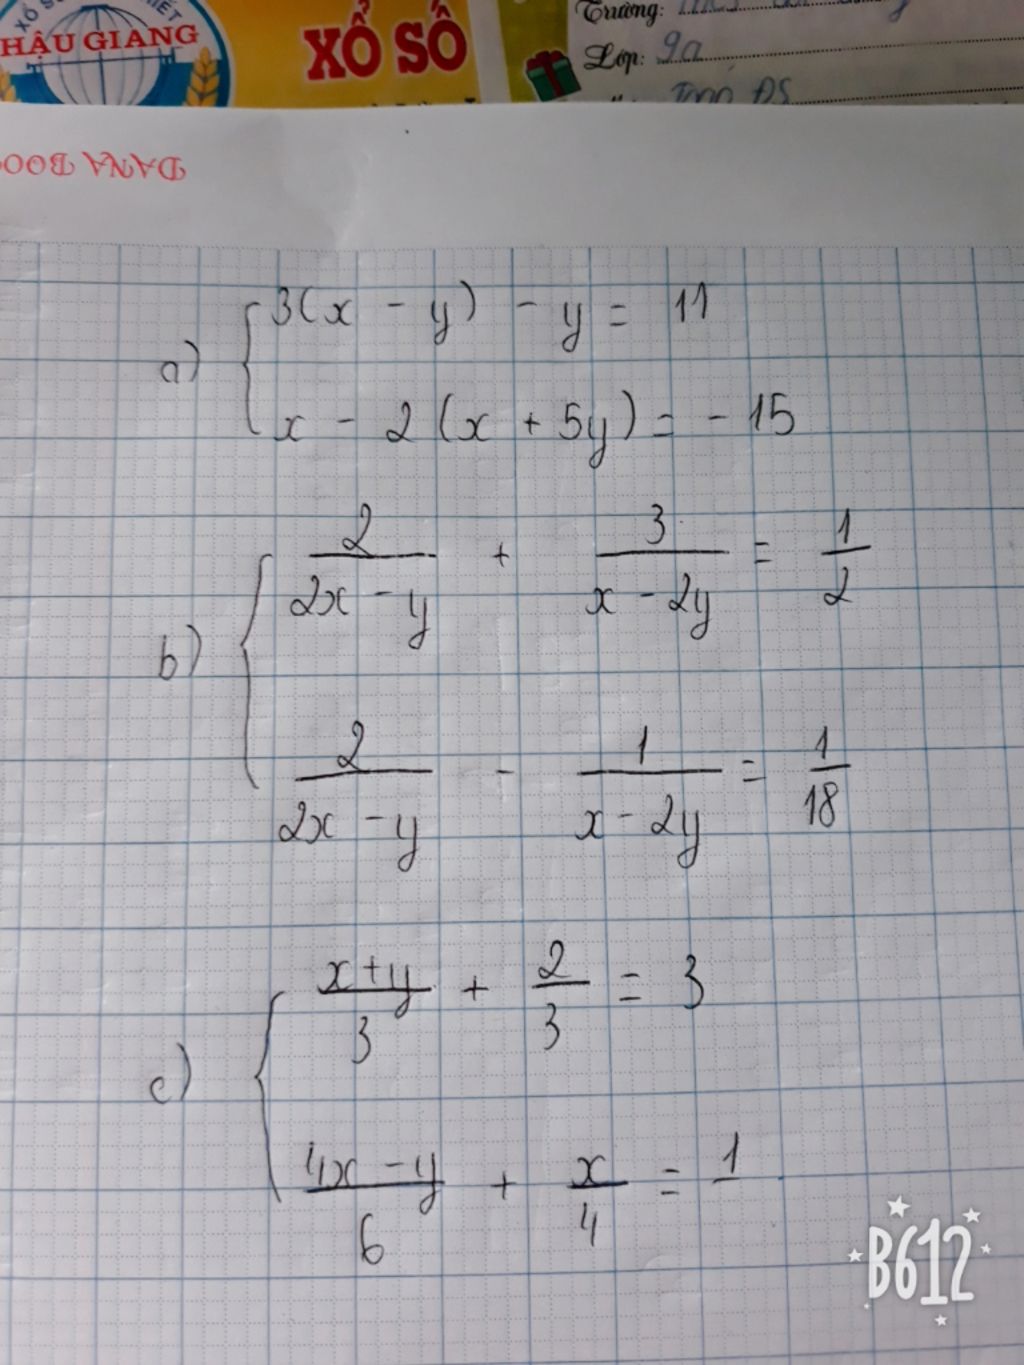 HẬU GIANG
XỔ SỐ
Trường:
Lớp: 9a
DANA BOO
a) { 3(x - y) - y = 11
x - 2(x + 5y) = -15
b) { 2/(2x - y) + 3/(x - 2y) = 1/2
2/(2x - y) - 1/(x - 2y) = 1/18
c) { (x+y)/3 + 2/3 = 3
(4x - y)/6 + x/4 = 1
B612